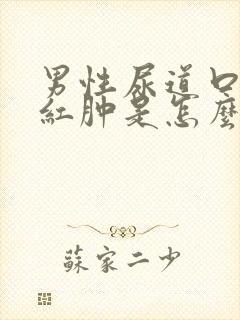 男性尿道口
紅肿是怎麼
蘇家二少